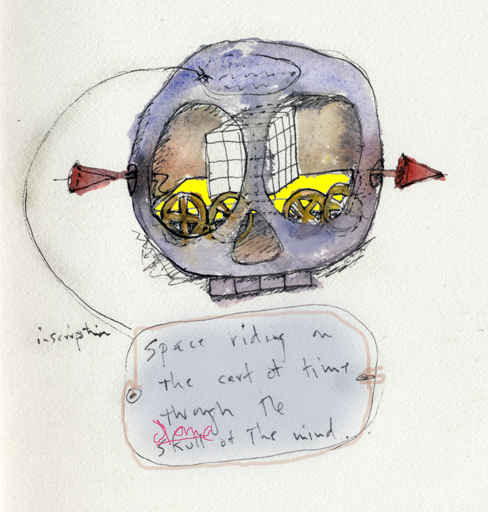 inscription
Space riding on
the cart of time
through the
skull of the mind.